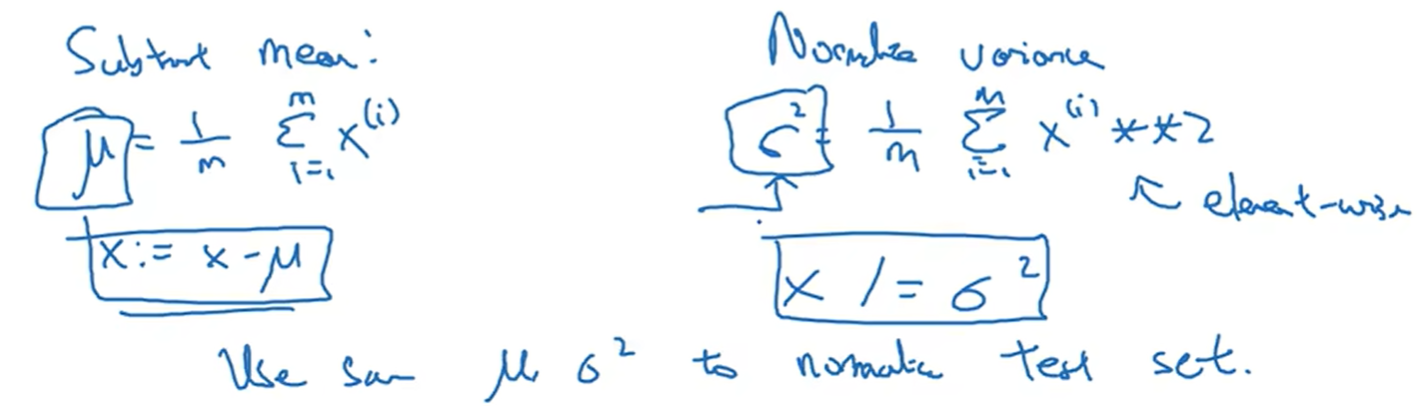 Subtract mean:
μ = 1/m Σ_{i=1}^{m} x^(i)
x := x - μ
Normalize variance
σ² = 1/m Σ_{i=1}^{m} x^(i) **2
↖ element-wise
x /= σ²
Use same μ, σ² to normalize test set.